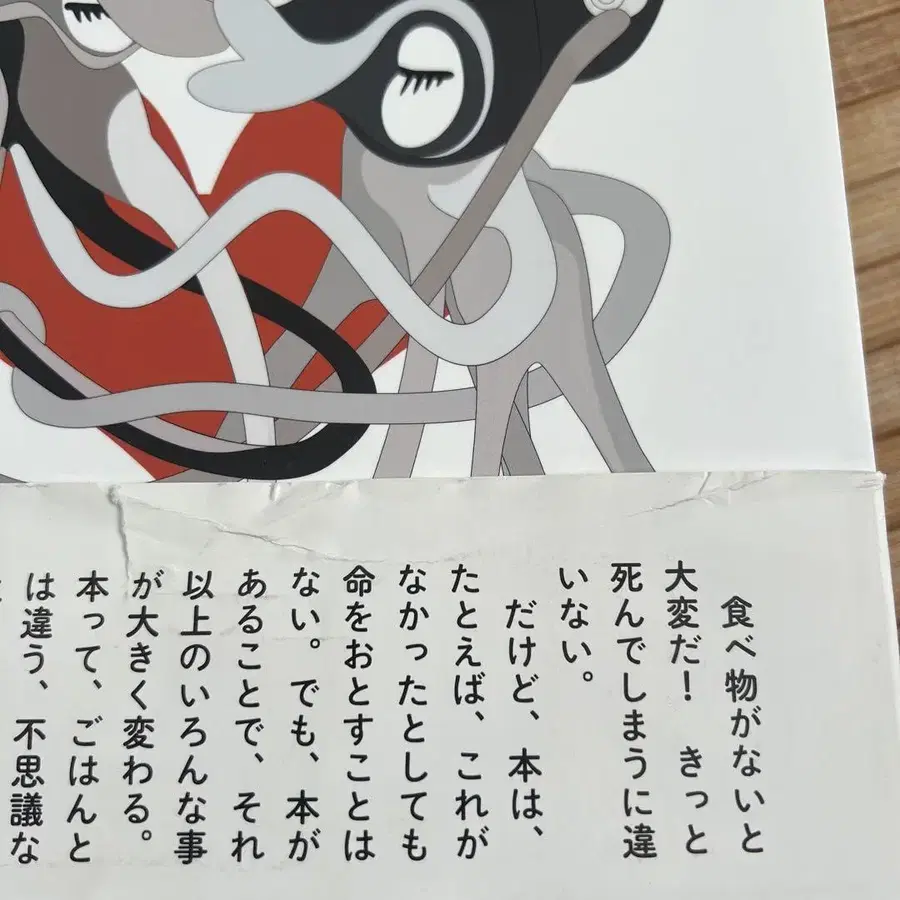 食べ物がないと
大変だ！ きっと
死んでしまうに違
いない。
だけど、本は、
たとえば、これが
なかったとしても
命をおとすことは
ない。でも、本が
あることで、それ
以上のいろんな事
が大きく変わる。
本って、ごはんと
は違う、不思議な